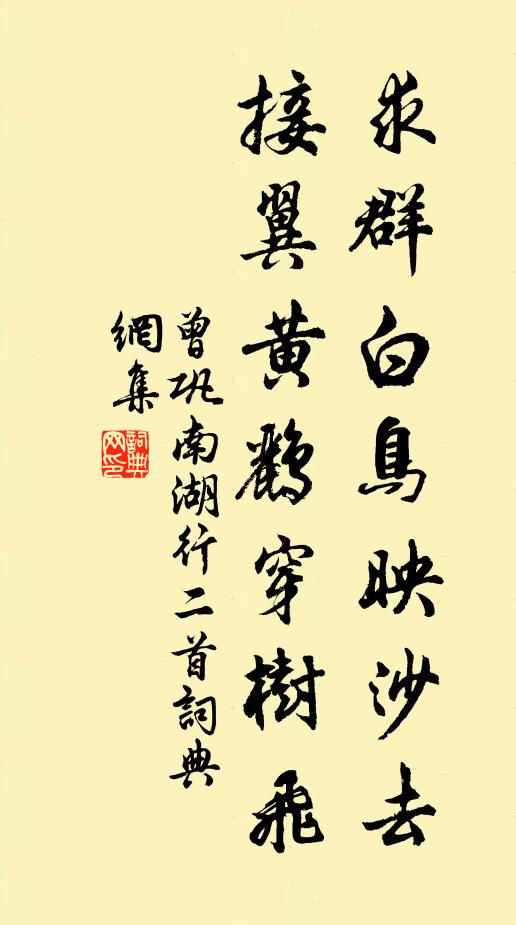 求群白鳥映沙去
接翼黃鸝穿樹飛
曾巩南湖行二首詞典
網集
詞典
网印